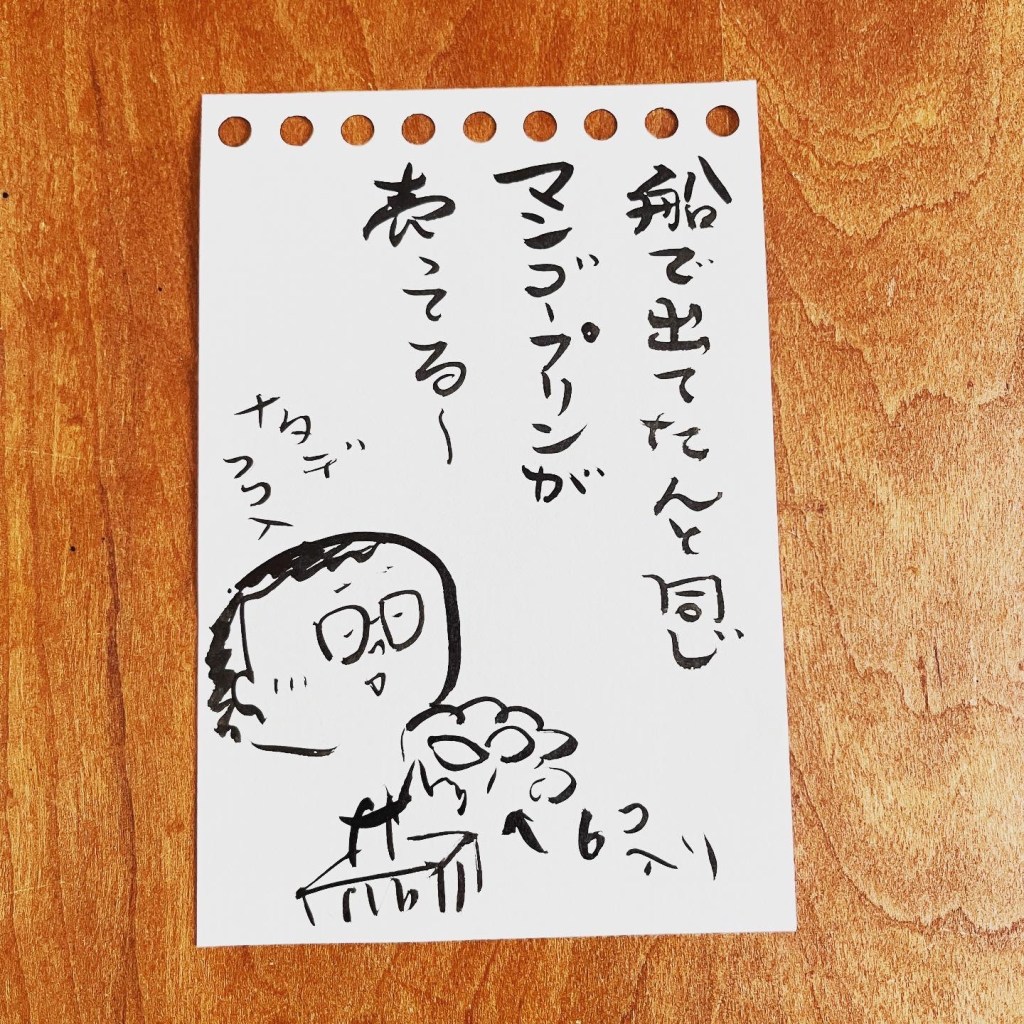 船で出てたんと同じ
マンゴープリンが
売ってる〜
ナタデ
ココ入
6コ入り